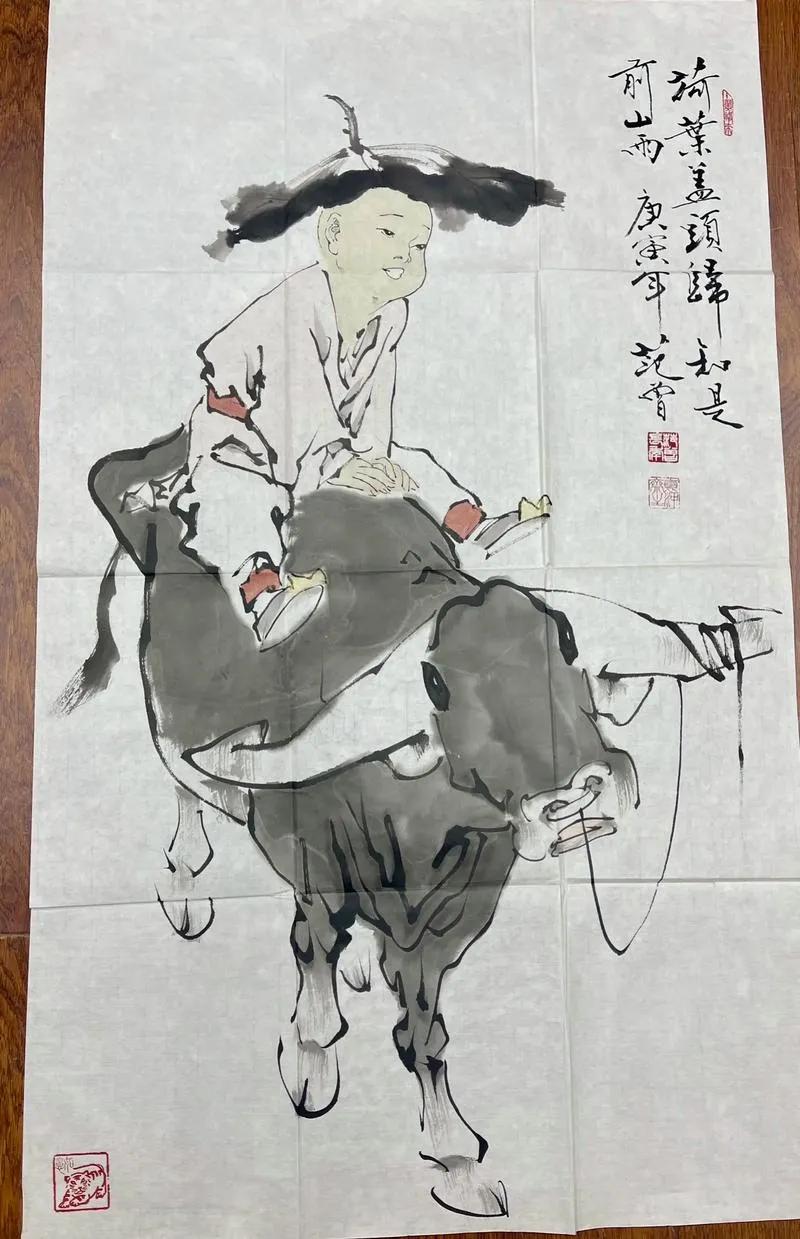 荷葉蓋頭歸 知是
前山雨 庚寅年 范曾